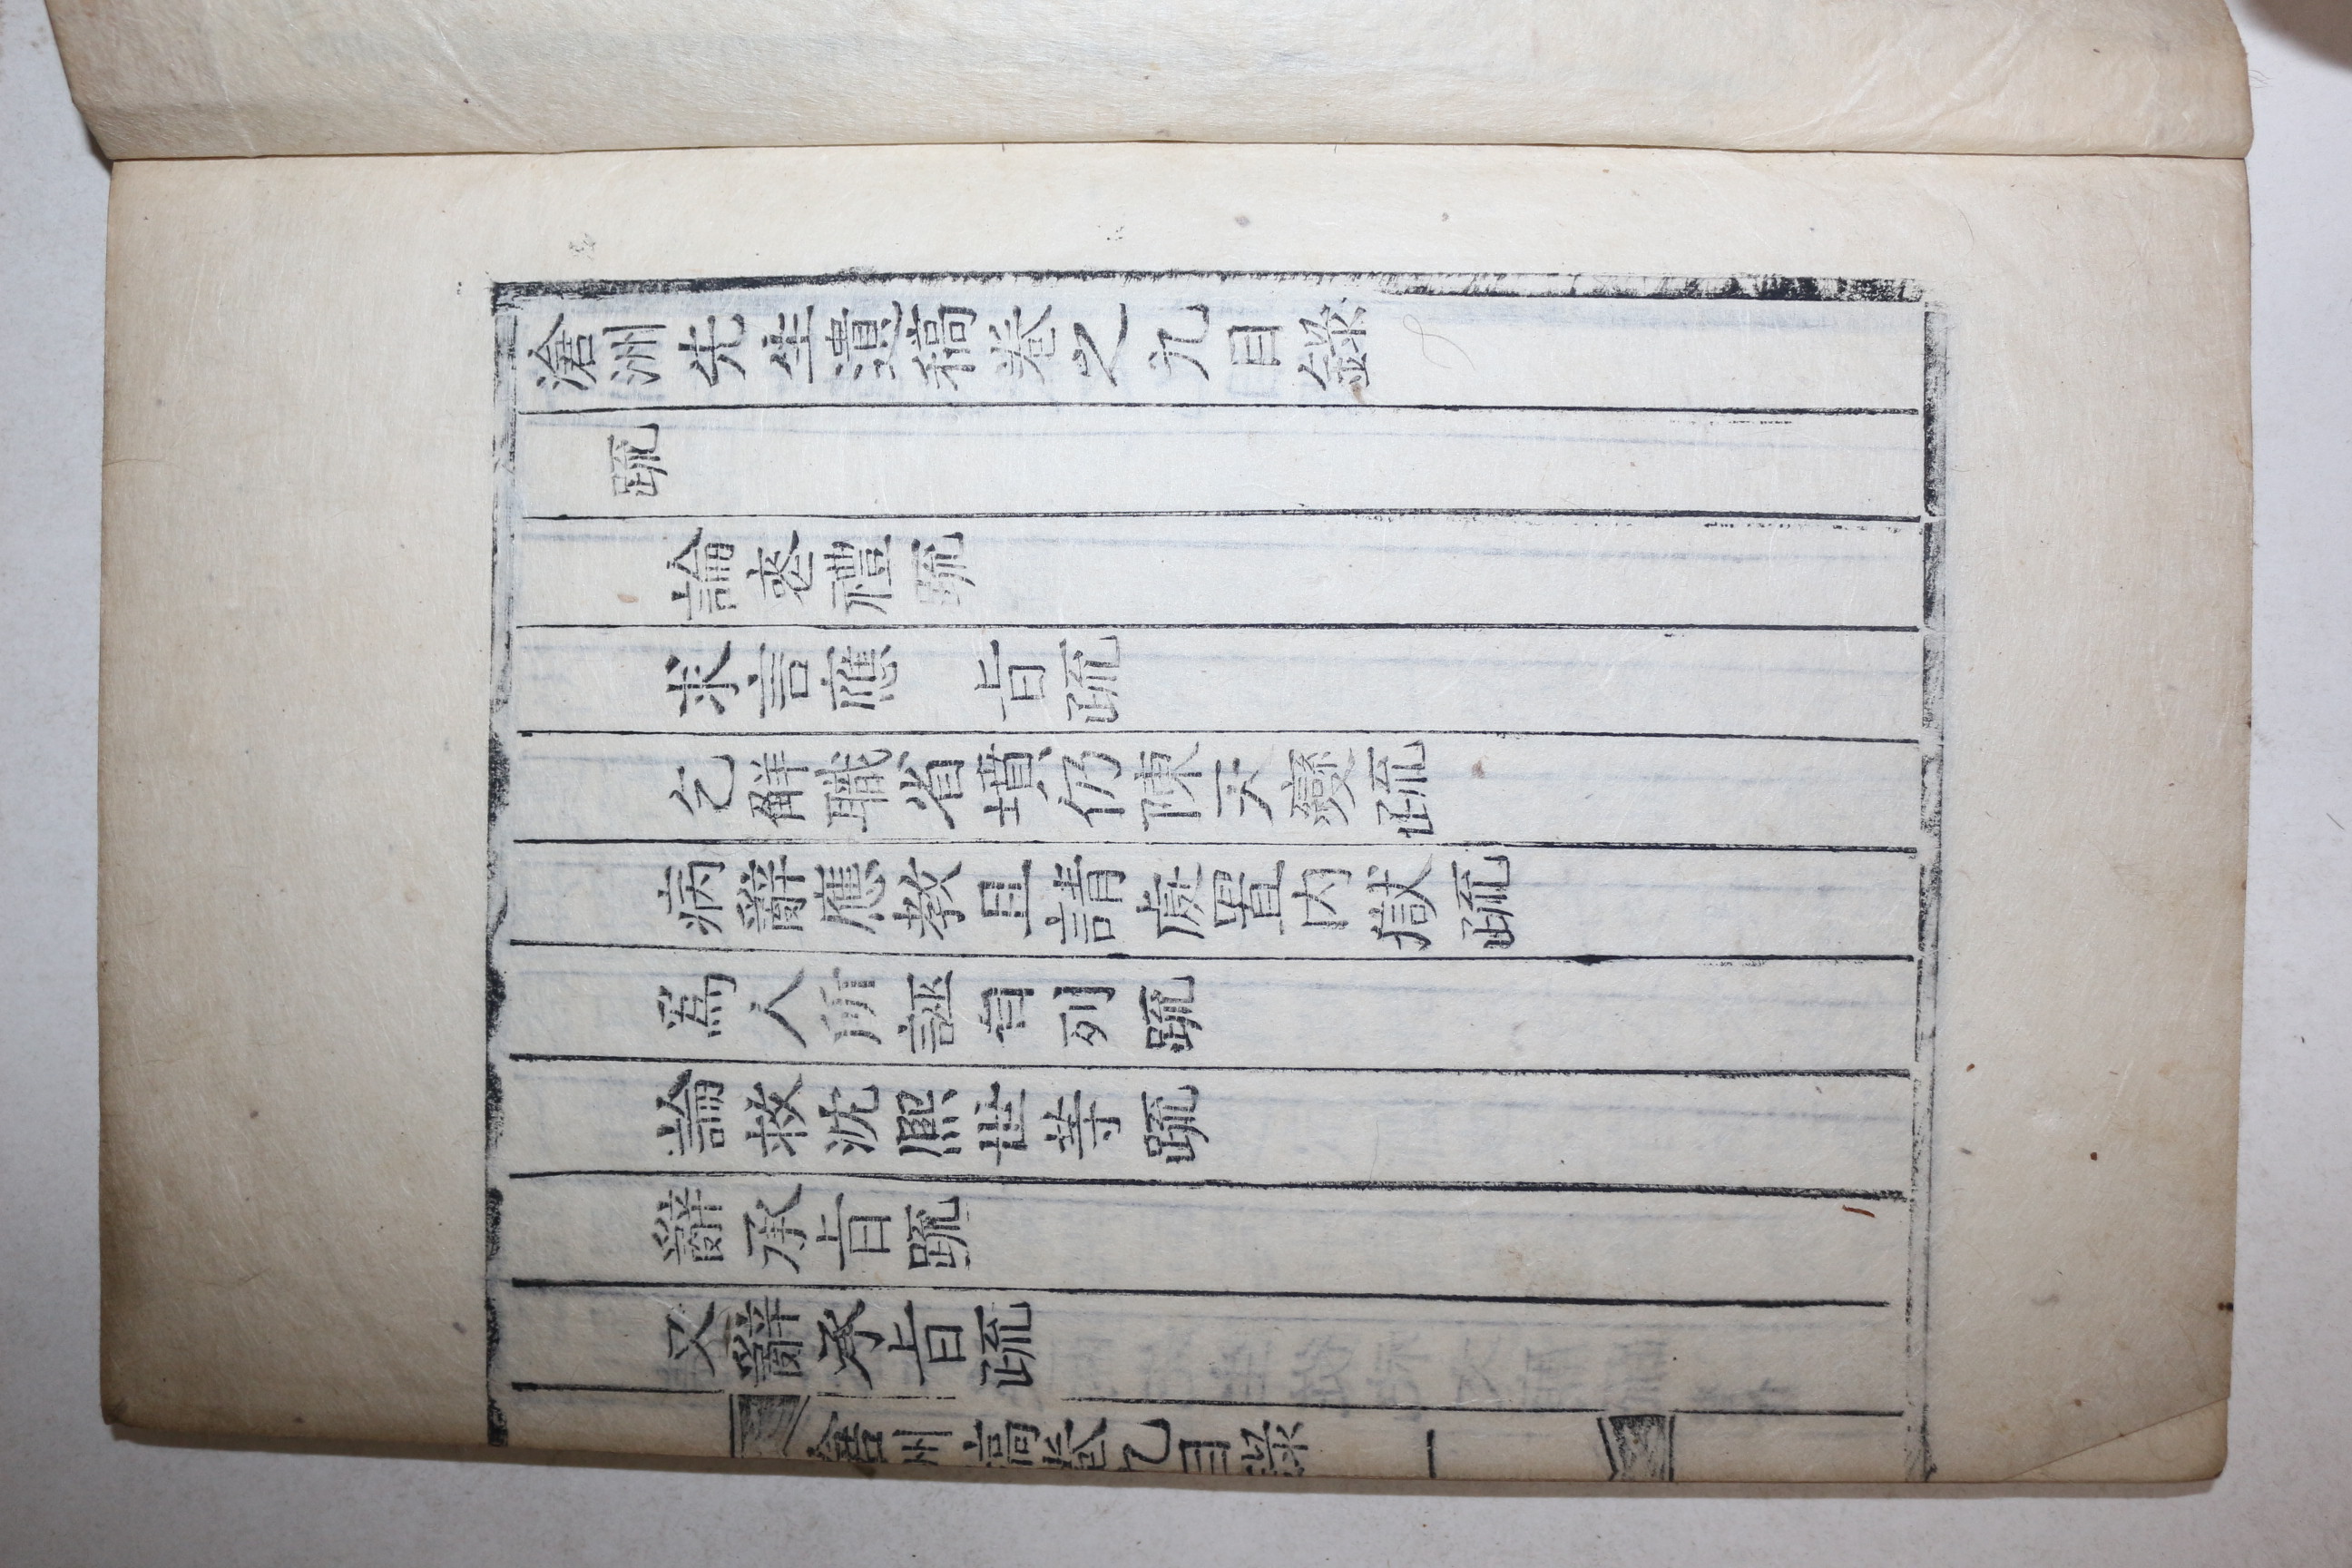 滄洲先生遺稿卷之九目錄
疏
論喪禮疏
求言應　旨疏
乞解職省墳仍陳天變疏
病辭應教且請處置內獄疏
爲人所誣自列疏
論救沈熙世等疏
辭承旨疏
又辭承旨疏
滄州稿卷九目錄　一